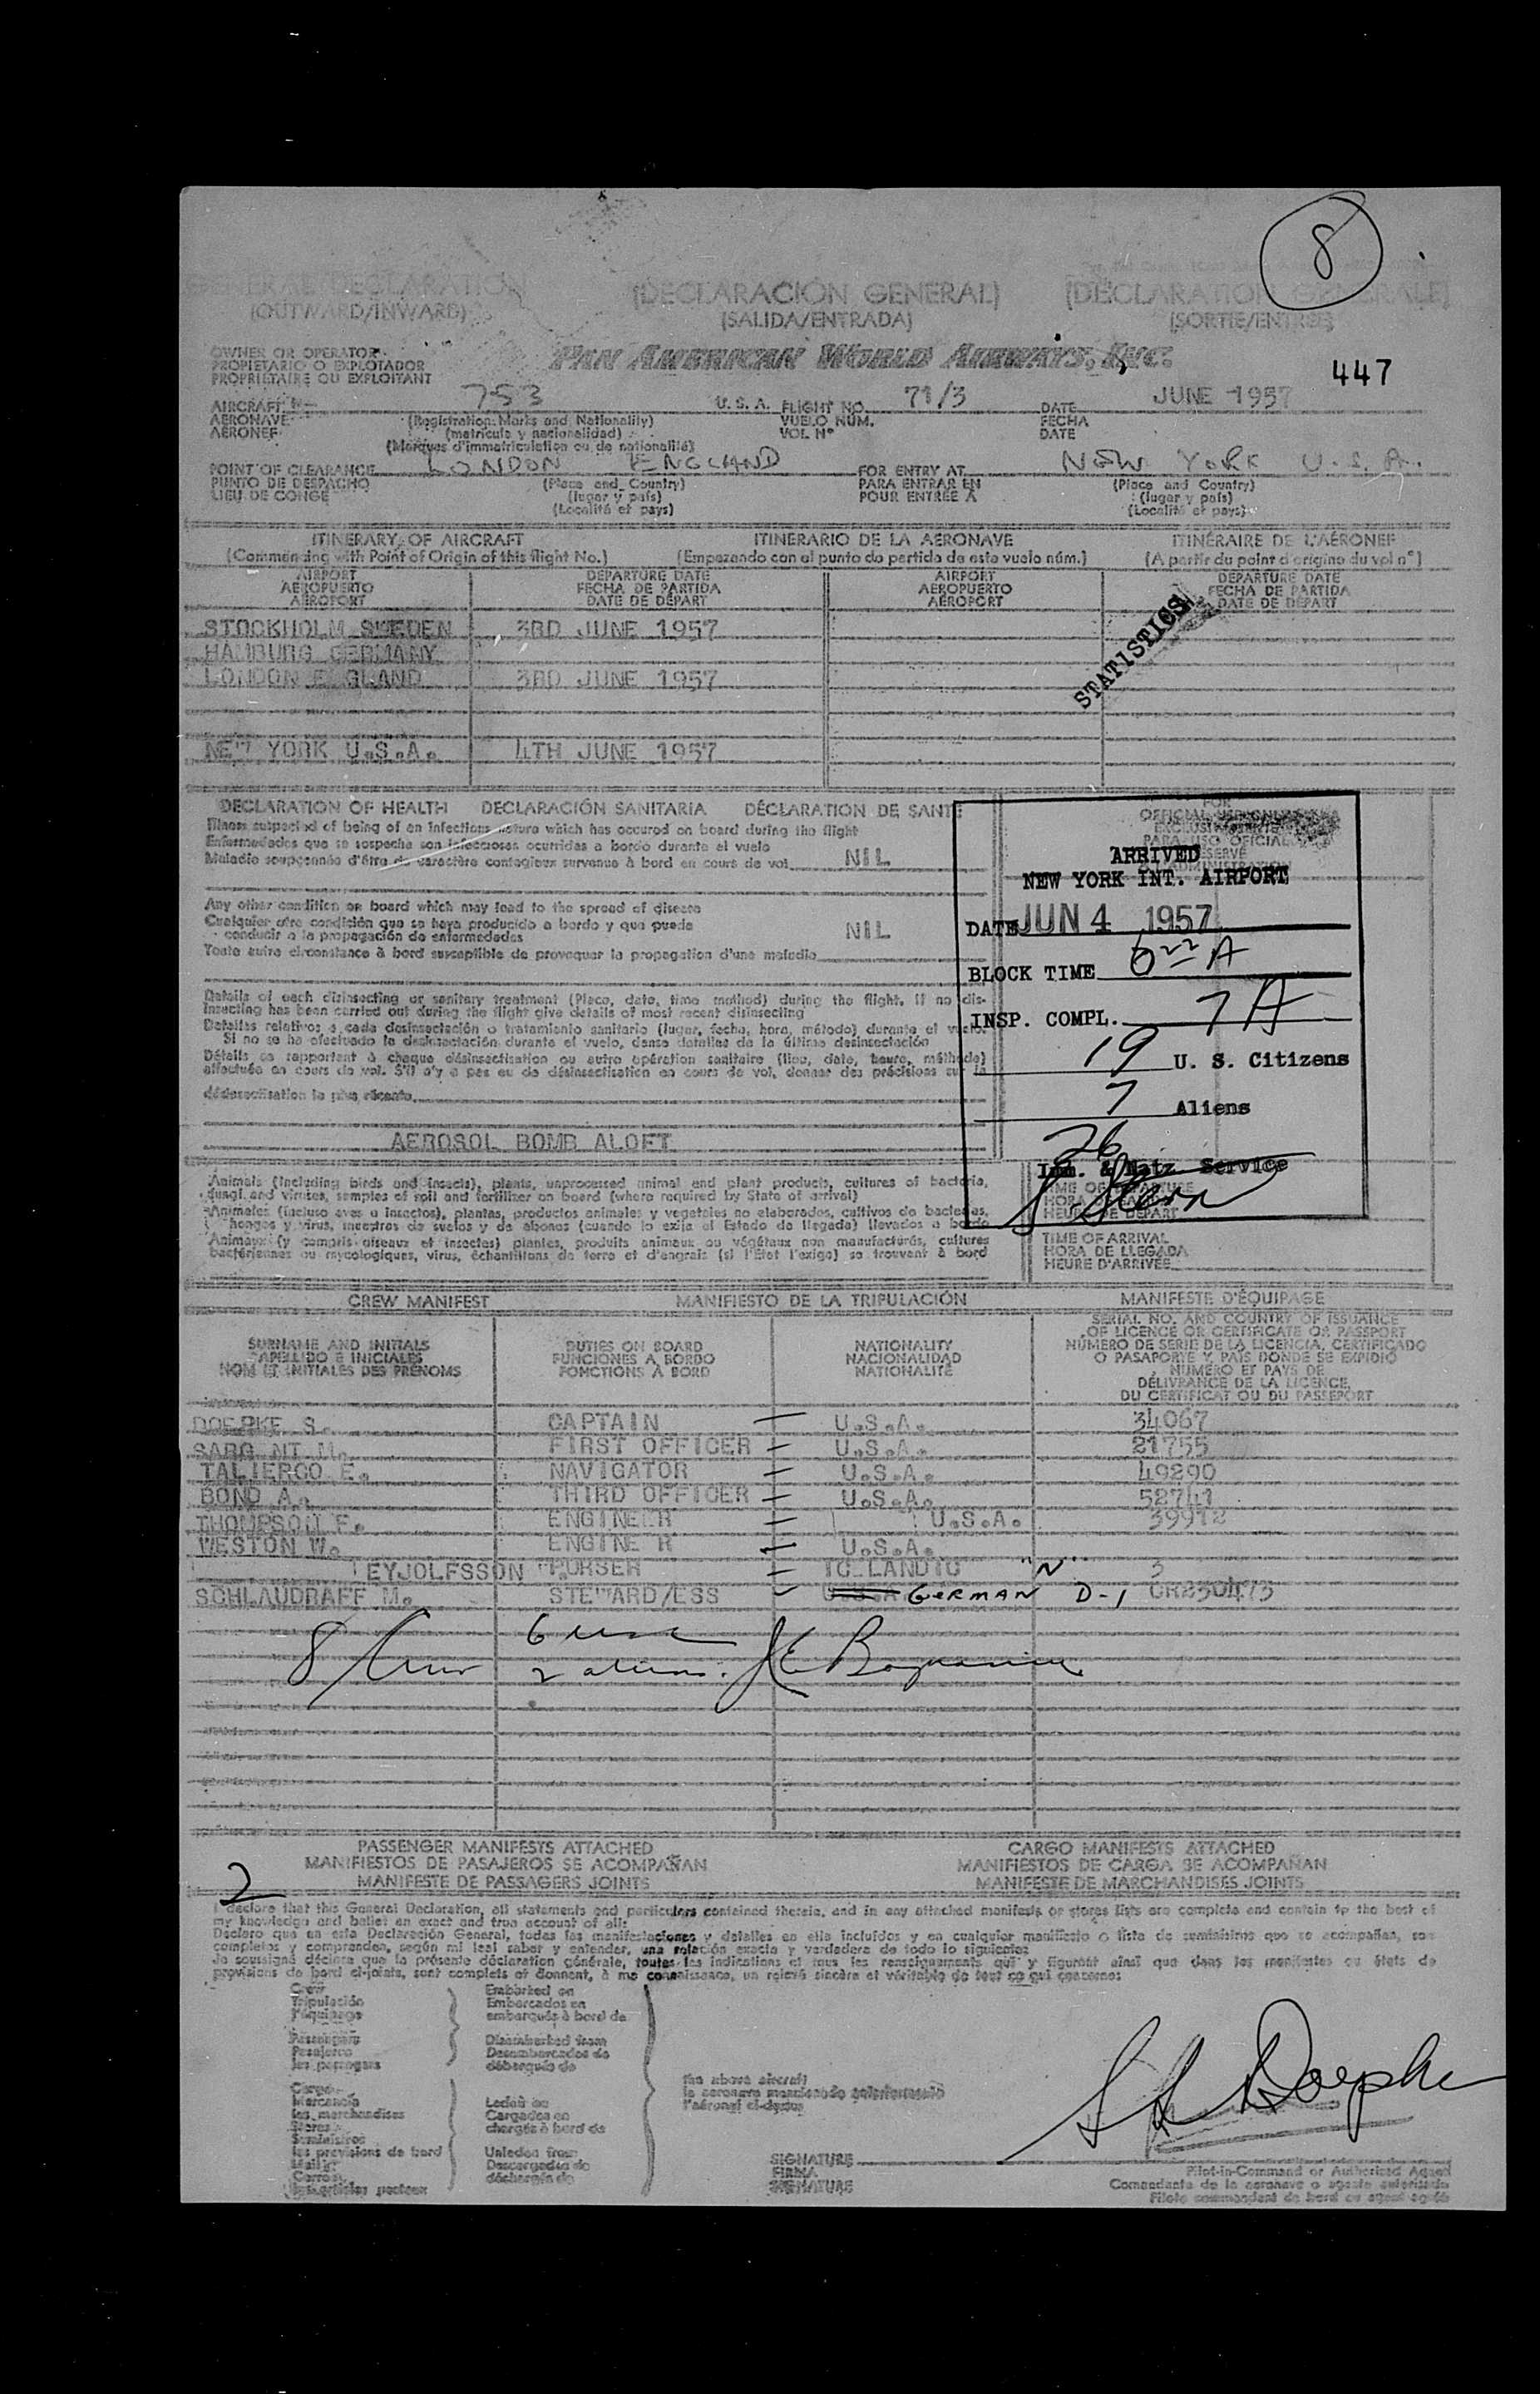 8
GENERAL DECLARATION (DECLARACIÓN GENERAL) (DECLARATION GENERALE)
(OUTWARD/INWARD) (SALIDA/ENTRADA) (SORTIE/ENTRÉE)
OWNER OR OPERATOR
PROPIETARIO O EXPLOTADOR
PROPRIETAIRE OU EXPLOITANT
PAN AMERICAN WORLD AIRWAYS, INC.
447
AIRCRAFT N- 753 U.S.A. FLIGHT NO. 71/3 DATE JUNE 1957
AERONAVE (Registration Marks and Nationality) VUELO NÚM. FECHA
AERONEF (matrícula y nacionalidad) VOL Nº DATE
(Marques d'immatriculation ou de nationalité)
POINT OF CLEARANCE LONDON ENGLAND FOR ENTRY AT NEW YORK U.S.A.
PUNTO DE DESPACHO (Place and Country) PARA ENTRAR EN (Place and Country)
LIEU DE CONGE (lugar y país) POUR ENTRÉE A (lugar y país)
(Localité et pays) (Localité et pays)
ITINERARY OF AIRCRAFT ITINERARIO DE LA AERONAVE ITINÉRAIRE DE L'AÉRONEF
(Commencing with Point of Origin of this flight No.) (Empezando con el punto de partida de este vuelo núm.) (A partir du point d'origine du vol nº)
AIRPORT DEPARTURE DATE AIRPORT DEPARTURE DATE
AEROPUERTO FECHA DE PARTIDA AEROPUERTO FECHA DE PARTIDA
AÉROPORT DATE DE DÉPART AÉROPORT DATE DE DÉPART
STATISTICS
STOCKHOLM SWEDEN 3RD JUNE 1957
HAMBURG GERMANY
LONDON ENGLAND 3RD JUNE 1957
NEW YORK U.S.A. 4TH JUNE 1957
DECLARATION OF HEALTH DECLARACIÓN SANITARIA DÉCLARATION DE SANTÉ
Illness suspected of being of an infectious nature which has occured on board during the flight
Enfermedades que se sospecha son infecciosas ocurridas a bordo durante el vuelo
Maladie soupçonnée d'être de caractère contagieux survenue à bord en cours de vol NIL
Any other condition on board which may lead to the spread of disease
Cualquier otra condición que se haya producido a bordo y que pueda
conducir a la propagación de enfermedades NIL
Toute autre circonstance à bord susceptible de provoquer la propagation d'une maladie
Details of each disinsecting or sanitary treatment (Place, date, time method) during the flight. If no dis-
insecting has been carried out during the flight give details of most recent disinsecting
Detalles relativos a cada desinsectación o tratamiento sanitario (lugar, fecha, hora, método) durante el vuelo.
Si no se ha efectuado la desinsectación durante el vuelo, dense detalles de la última desinsectación
Détails se rapportant à chaque désinsectisation ou autre opération sanitaire (lieu, date, heure, méthode)
effectuée en cours de vol. S'il n'y a pas eu de désinsectisation en cours de vol, donner des précisions sur la
désinsectisation la plus récente
AEROSOL BOMB ALOFT
ARRIVED
NEW YORK INT. AIRPORT
DATE JUN 4 1957
BLOCK TIME 6 22 A
INSP. COMPL. 7 A
19 U. S. Citizens
7 Aliens
26
Imm. & Natz Service
Animals (including birds and insects), plants, unprocessed animal and plant products, cultures of bacteria,
fungi and viruses, samples of soil and fertilizer on board (where required by State of arrival)
Animales (incluso aves o insectos), plantas, productos animales y vegetales no elaborados, cultivos de bacterias,
hongos y virus, muestras de suelos y de abonos (cuando lo exija el Estado de llegada) llevados a bordo
Animaux (y compris oiseaux et insectes) plantes, produits animaux ou végétaux non manufacturés, cultures
bactériennes ou mycologiques, virus, échantillons de terre et d'engrais (si l'État l'exige) se trouvant à bord
TIME OF ARRIVAL
HORA DE LLEGADA
HEURE D'ARRIVÉE
CREW MANIFEST MANIFIESTO DE LA TRIPULACIÓN MANIFESTE D'ÉQUIPAGE
SURNAME AND INITIALS DUTIES ON BOARD NATIONALITY
APELLIDO E INICIALES FUNCIONES A BORDO NACIONALIDAD
NOM ET INITIALES DES PRÉNOMS FONCTIONS À BORD NATIONALITÉ
SERIAL NO. AND COUNTRY OF ISSUANCE
OF LICENCE OR CERTIFICATE OR PASSPORT
NÚMERO DE SERIE DE LA LICENCIA, CERTIFICADO
O PASAPORTE Y PAÍS DONDE SE EXPIDIÓ
NUMÉRO ET PAYS DE
DÉLIVRANCE DE LA LICENCE,
DU CERTIFICAT OU DU PASSEPORT
DOEPKE S. CAPTAIN — U.S.A. 34067
SARG NT M. FIRST OFFICER — U.S.A. 21755
TALIERCO E. NAVIGATOR — U.S.A. 49290
BOND A. THIRD OFFICER — U.S.A. 52741
THOMPSON F. ENGINEER — U.S.A. 39912
WESTON W. ENGINE R — U.S.A.
EYJOLFSSON PURSER — ICELANDIC "N" 3
SCHLAUDRAFF M. STEWARD/ESS U.S.A GERMAN D-1 GR250473
8 Crew 6 usc
2 aliens.
PASSENGER MANIFESTS ATTACHED CARGO MANIFESTS ATTACHED
MANIFIESTOS DE PASAJEROS SE ACOMPAÑAN MANIFIESTOS DE CARGA SE ACOMPAÑAN
2 MANIFESTE DE PASSAGERS JOINTS MANIFESTE DE MARCHANDISES JOINTS
I declare that this General Declaration, all statements and particulars contained therein, and in any attached manifests or stores lists are complete and contain to the best of
my knowledge and belief an exact and true account of all:
Declaro que en esta Declaración General, todas las manifestaciones y detalles en ella incluidos y en cualquier manifiesto o lista de suministros que se acompañan, son
completos y comprenden, según mi leal saber y entender, una relación exacta y verdadera de todo lo siguiente:
Je soussigné déclare que la présente déclaration générale, toutes les indications et tous les renseignements qui y figurent ainsi que dans les manifestes ou états de
provisions de bord ci-joints, sont complets et donnent, à ma connaissance, un relevé sincère et véritable de tout ce qui concerne:
Crew Embarked on
Tripulación Embarcados en
l'équipage embarqués à bord de
Passengers Disembarked from
Pasajeros Desembarcados de
les passagers débarqués de
the above aircraft
la aeronave mencionada anteriormente
l'aéronef ci-dessus
Cargo
Mercancía Laded on
les marchandises Cargados en
Stores chargés à bord de
Suministros
les provisions de bord Unladed from
Mail Descargados de
Correo déchargés de
les articles postaux
S L Doepke
SIGNATURE
FIRMA
SIGNATURE
Pilot-in-Command or Authorised Agent
Comandante de la aeronave o agente autorizado
Pilote commandant de bord ou agent agréé